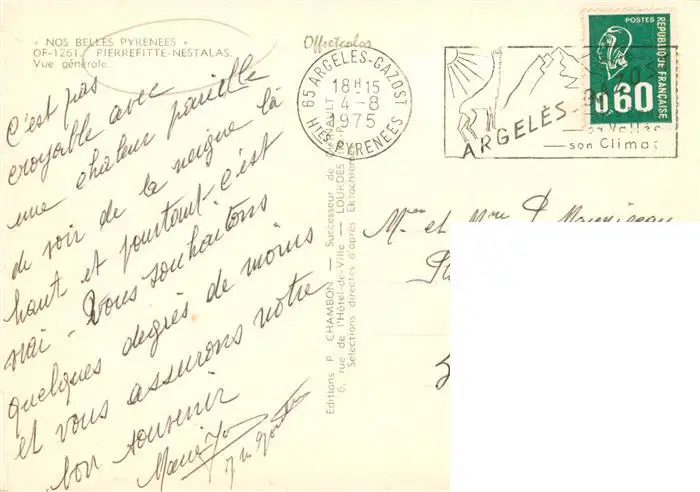 « NOS BELLES PYRENEES »
OF-1261. PIERREFITTE-NESTALAS.
Vue générale.
Offsetcolor
C'est pas
croyable avec
une chaleur pareille
de voir de la neige là
haut et pourtant c'est
vrai - Vous souhaitons
quelques degrés de moins
et vous assurons notre
bon souvenir
Editions P. CHAMBON — Successeur de
6, rue de l'Hôtel-de-Ville — LOURDES
Sélections directes d'après Ektachrome
65 ARGELES-GAZOST
18H15
4-8
1975
HTES PYRENEES
ARGELÈS-GAZOST
sa Vallée
son Climat
POSTES
REPUBLIQUE FRANÇAISE
0,60
Mr et Mme P.